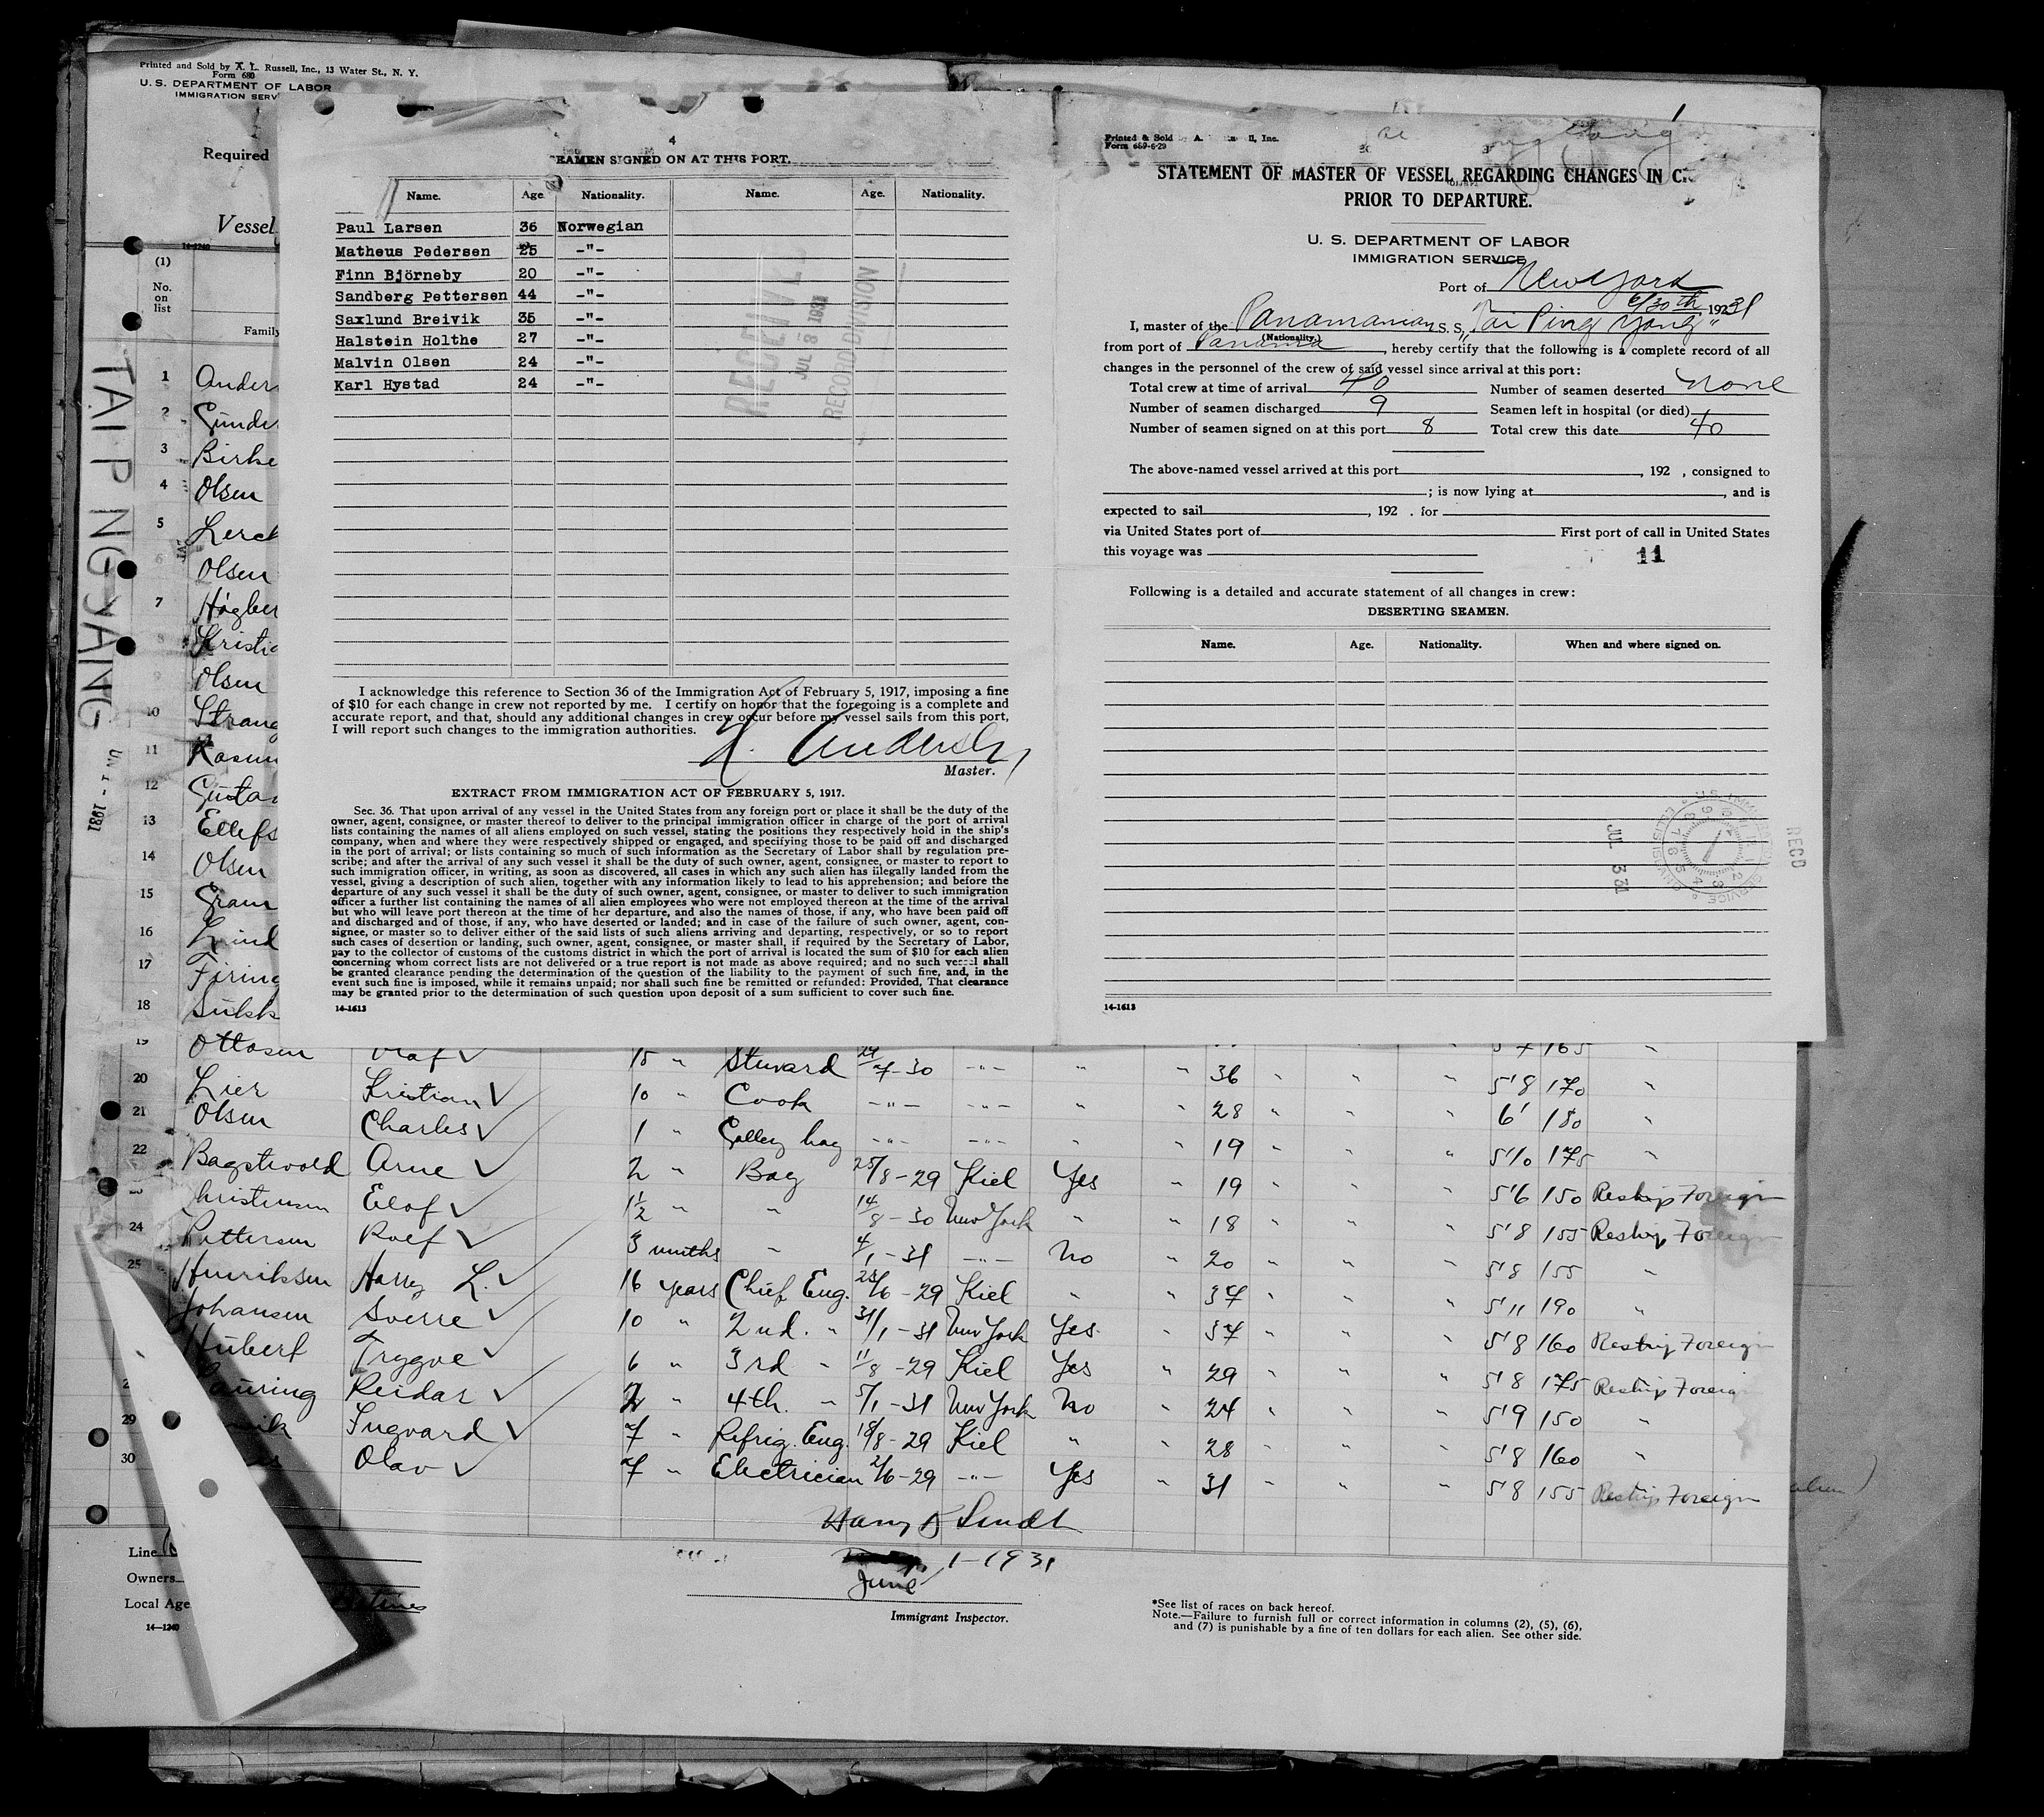 Printed and Sold by A. L. Russell, Inc., 13 Water St., N. Y.
Form 680
U. S. DEPARTMENT OF LABOR
IMMIGRATION SERV
Required
Vessel
14-1240
(1)
No.
on
list
Family
TAI P NG YANG
1931
1 Anders
2 Gunder
3 Birke
4 Olsen
5 Lerck
6 Olsen
7 Högber
8 Kristia
9 Olsen
10 Strang
11 Rasmu
12 Gustav
13 Ellefs
14 Olsen
15 Gram
16 Lind
17 Firing
18 Sukk
4
EAMEN SIGNED ON AT THIS PORT.
Name. Age. Nationality. Name. Age. Nationality.
Paul Larsen 36 Norwegian
Matheus Pedersen 25 -"-
Finn Björneby 20 -"-
Sandberg Pettersen 44 -"-
Saxlund Breivik 35 -"-
Halstein Holthe 27 -"-
Malvin Olsen 24 -"-
Karl Hystad 24 -"-
RECEIVED
JUL 8 1931
RECORD DIVISION
I acknowledge this reference to Section 36 of the Immigration Act of February 5, 1917, imposing a fine
of $10 for each change in crew not reported by me. I certify on honor that the foregoing is a complete and
accurate report, and that, should any additional changes in crew occur before my vessel sails from this port,
I will report such changes to the immigration authorities.
Master.
EXTRACT FROM IMMIGRATION ACT OF FEBRUARY 5, 1917.
Sec. 36. That upon arrival of any vessel in the United States from any foreign port or place it shall be the duty of the
owner, agent, consignee, or master thereof to deliver to the principal immigration officer in charge of the port of arrival
lists containing the names of all aliens employed on such vessel, stating the positions they respectively hold in the ship's
company, when and where they were respectively shipped or engaged, and specifying those to be paid off and discharged
in the port of arrival; or lists containing so much of such information as the Secretary of Labor shall by regulation pre-
scribe; and after the arrival of any such vessel it shall be the duty of such owner, agent, consignee, or master to report to
such immigration officer, in writing, as soon as discovered, all cases in which any such alien has illegally landed from the
vessel, giving a description of such alien, together with any information likely to lead to his apprehension; and before the
departure of any such vessel it shall be the duty of such owner, agent, consignee, or master to deliver to such immigration
officer a further list containing the names of all alien employees who were not employed thereon at the time of the arrival
but who will leave port thereon at the time of her departure, and also the names of those, if any, who have been paid off
and discharged and of those, if any, who have deserted or landed; and in case of the failure of such owner, agent, con-
signee, or master so to deliver either of the said lists of such aliens arriving and departing, respectively, or so to report
such cases of desertion or landing, such owner, agent, consignee, or master shall, if required by the Secretary of Labor,
pay to the collector of customs of the customs district in which the port of arrival is located the sum of $10 for each alien
concerning whom correct lists are not delivered or a true report is not made as above required; and no such vessel shall
be granted clearance pending the determination of the question of the liability to the payment of such fine, and, in the
event such fine is imposed, while it remains unpaid; nor shall such fine be remitted or refunded: Provided, That clearance
may be granted prior to the determination of such question upon deposit of a sum sufficient to cover such fine.
14-1613
Printed & Sold by A. ll, Inc.
Form 689-6-29
STATEMENT OF MASTER OF VESSEL REGARDING CHANGES IN C
PRIOR TO DEPARTURE.
U. S. DEPARTMENT OF LABOR
IMMIGRATION SERVICE
Port of New York
6/30th 1931
I, master of the Panamanian S. S. "Tai Ping Yang"
(Nationality.)
from port of Panama, hereby certify that the following is a complete record of all
changes in the personnel of the crew of said vessel since arrival at this port:
Total crew at time of arrival 40 Number of seamen deserted none
Number of seamen discharged 9 Seamen left in hospital (or died)
Number of seamen signed on at this port 8 Total crew this date 40
The above-named vessel arrived at this port , 192 , consigned to
; is now lying at , and is
expected to sail , 192 . for
via United States port of First port of call in United States
this voyage was
11
Following is a detailed and accurate statement of all changes in crew:
DESERTING SEAMEN.
Name. Age. Nationality. When and where signed on.
JUL 3 31
RECD
14-1613
19 Ottosen Olaf 15 " Steward 24/7-30 -"- " " 36 " " " 5'7 165 "
20 Lier Kristian 10 " Cook -"- -"- " " 28 " " " 5'8 170 "
21 Olsen Charles 1 " Galley boy -"- -"- " " 19 " " " 6' 180 "
22 Bagstevold Arne 2 " Boy 25/8-29 Kiel Yes " 19 " " " 5'10 175 "
hristensen Elof 1½ " " 14/8-30 New York " " 18 " " " 5'6 150 Reship Foreign
24 Pettersen Rolf 3 months " 4/1-31 -"- No " 20 " " " 5'8 155 Reship Foreign
25 Henriksen Harry L. 16 years Chief Eng. 25/6-29 Kiel " " 37 " " " 5'8 155 "
Johansen Sverre 10 " 2nd. " 31/1-31 New York Yes " 37 " " " 5'11 190 "
Hubert Trygve 6 " 3rd " 11/8-29 Kiel Yes " 29 " " " 5'8 160 Reship Foreign
auring Reidar 2 " 4th. " 5/1-31 New York No " 24 " " " 5'8 175 Reship Foreig
29 vik Ingvard 7 " Refrig. Eng. 18/8-29 Kiel " " 28 " " " 5'9 150 "
30 Olav 7 " Electrician 2/6-29 -"- Yes " 31 " " " 5'8 160 "
5'8 155 Reship Foreign
June 1-1931
Line
Owners
Local Age
14-1240
Immigrant Inspector.
*See list of races on back hereof.
Note.—Failure to furnish full or correct information in columns (2), (5), (6),
and (7) is punishable by a fine of ten dollars for each alien. See other side.